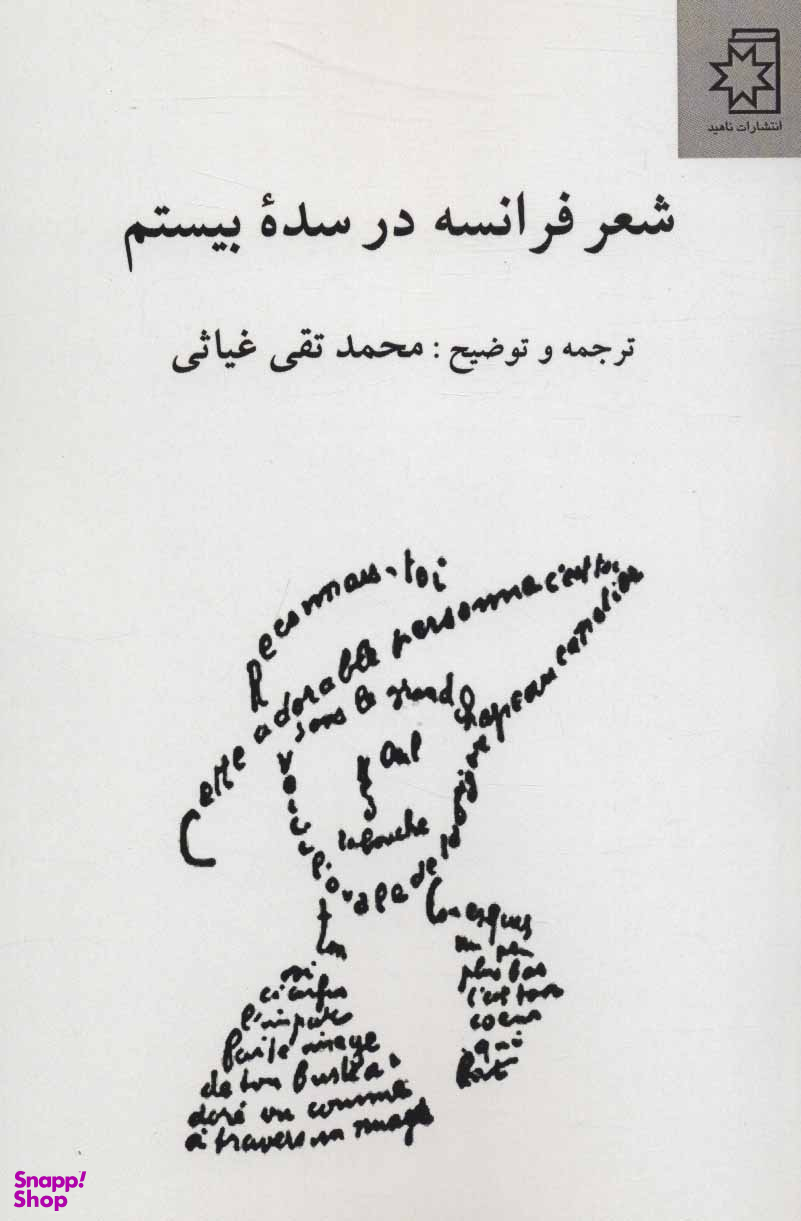 انتشارات ناهید
شعر فرانسه در سدۀ بیستم
ترجمه و توضیح : محمد تقی غیاثی
Reconnais-toi
Cette adorable personne c'est toi
sous le grand chapeau canotier
Œil
la bouche
Voici l'ovale de ta figure
ton
cou exquis
un peu
plus bas
c'est ton
coeur
qui
bat
ci enfin
l'impar
faite image
de ton buste a
doré vu comme
à travers un nuage
Snapp!
Shop